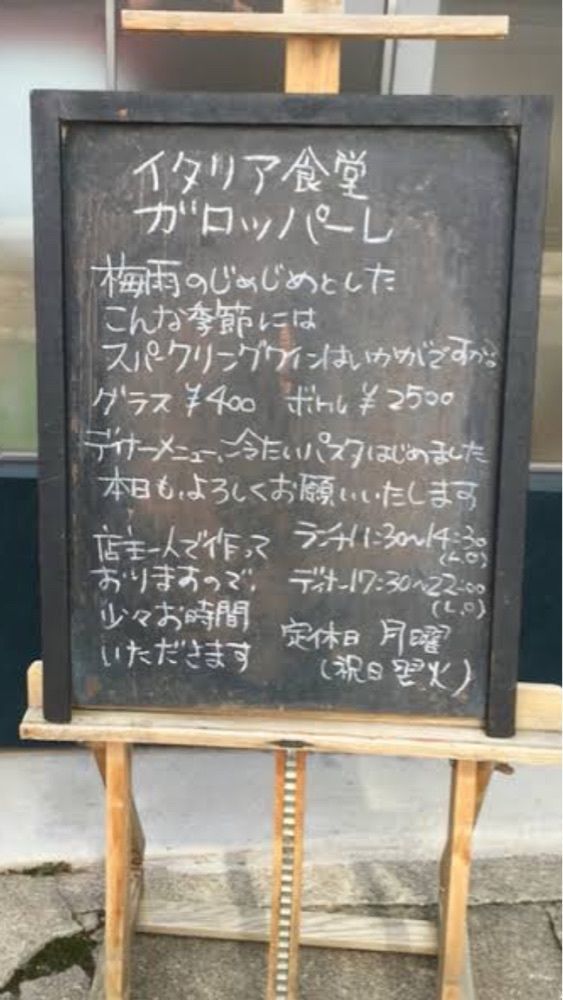 イタリア食堂
ガロッパーレ
梅雨のじめじめとした
こんな季節には
スパークリングワインはいかがですか?
グラス ¥400 ボトル ¥2500
ディナーメニュー、冷たいパスタはじめました
本日も、よろしくお願いいたします
店主一人で作って
おりますので、
少々お時間
いただきます
ランチ11:30〜14:30
(L.O)
ディナー17:30〜22:00
(L.O)
定休日 月曜
(祝日翌火)